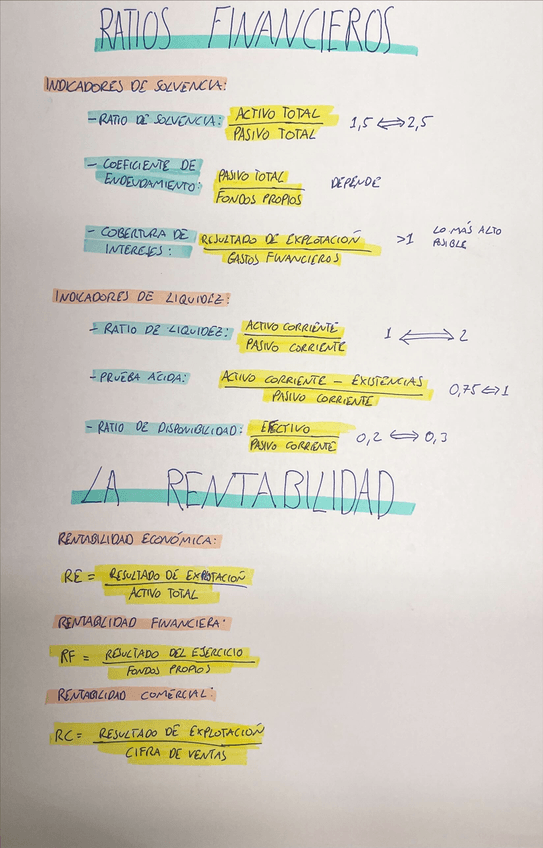 RATIOS FINANCIEROS
INDICADORES DE SOLVENCIA:
- RATIO DE SOLVENCIA: ACTIVO TOTAL / PASIVO TOTAL 1,5 ⟺ 2,5
- COEFICIENTE DE
ENDEUDAMIENTO: PASIVO TOTAL / FONDOS PROPIOS DEPENDE
- COBERTURA DE
INTERESES: RESULTADO DE EXPLOTACIÓN / GASTOS FINANCIEROS >1 LO MÁS ALTO
POSIBLE
INDICADORES DE LIQUIDEZ:
- RATIO DE LIQUIDEZ: ACTIVO CORRIENTE / PASIVO CORRIENTE 1 ⟺ 2
- PRUEBA ÁCIDA: ACTIVO CORRIENTE - EXISTENCIAS / PASIVO CORRIENTE 0,75 ⟺ 1
- RATIO DE DISPONIBILIDAD: EFECTIVO / PASIVO CORRIENTE 0,2 ⟺ 0,3
LA RENTABILIDAD
RENTABILIDAD ECONÓMICA:
RE = RESULTADO DE EXPLOTACIÓN / ACTIVO TOTAL
RENTABILIDAD FINANCIERA:
RF = RESULTADO DEL EJERCICIO / FONDOS PROPIOS
RENTABILIDAD COMERCIAL:
RC = RESULTADO DE EXPLOTACIÓN / CIFRA DE VENTAS